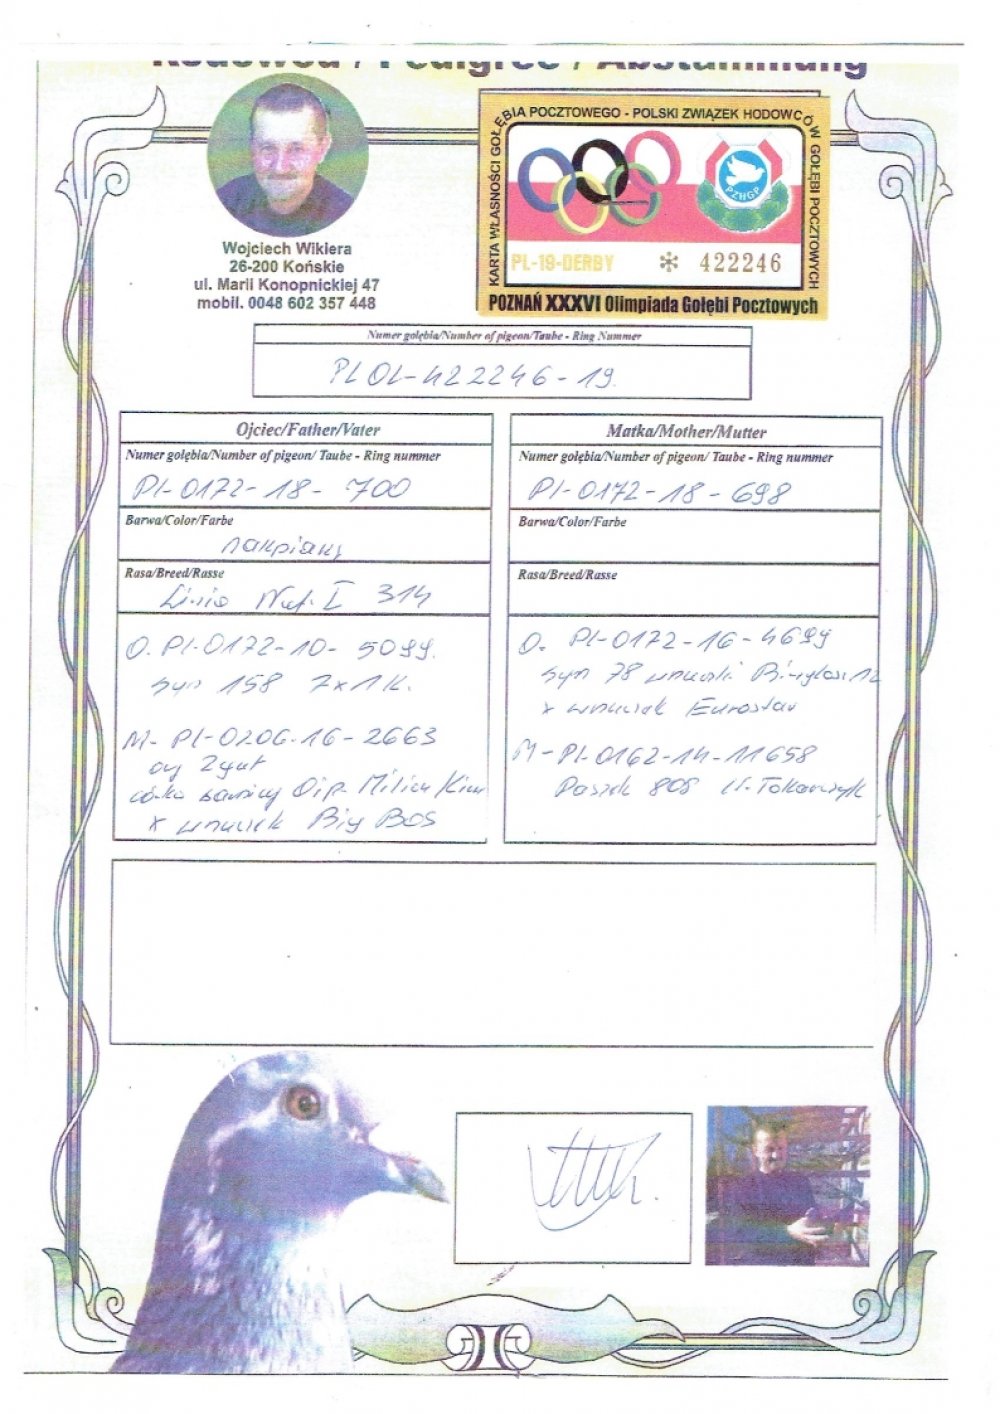 Rodowód / Pedigree / Abstammung
KARTA WŁASNOŚCI GOŁĘBIA POCZTOWEGO - POLSKI ZWIĄZEK HODOWCÓW GOŁĘBI POCZTOWYCH
PZHGP
PL-19-DERBY * 422246
POZNAŃ XXXVI Olimpiada Gołębi Pocztowych
Wojciech Wikiera
26-200 Końskie
ul. Marii Konopnickiej 47
mobil. 0048 602 357 448
Numer gołębia/Number of pigeon/Taube - Ring Nummer
PL OL-422246-19.
Ojciec/Father/Vater
Numer gołębia/Number of pigeon/ Taube - Ring nummer
Pl-0172-18-700
Barwa/Color/Farbe
nakpiany
Rasa/Breed/Rasse
Linia 314
O. Pl-0172-10-5099.
syn 158 7x1k.
M- Pl-0206-16-2663
córka
x wnuczek Big Bos
Matka/Mother/Mutter
Numer gołębia/Number of pigeon/ Taube - Ring nummer
Pl-0172-18-698
Barwa/Color/Farbe
Rasa/Breed/Rasse
O. Pl-0172-16-4699
syn 78
x wnuczek Eurostar
M-Pl-0162-14-11658
808 Tokarczyk